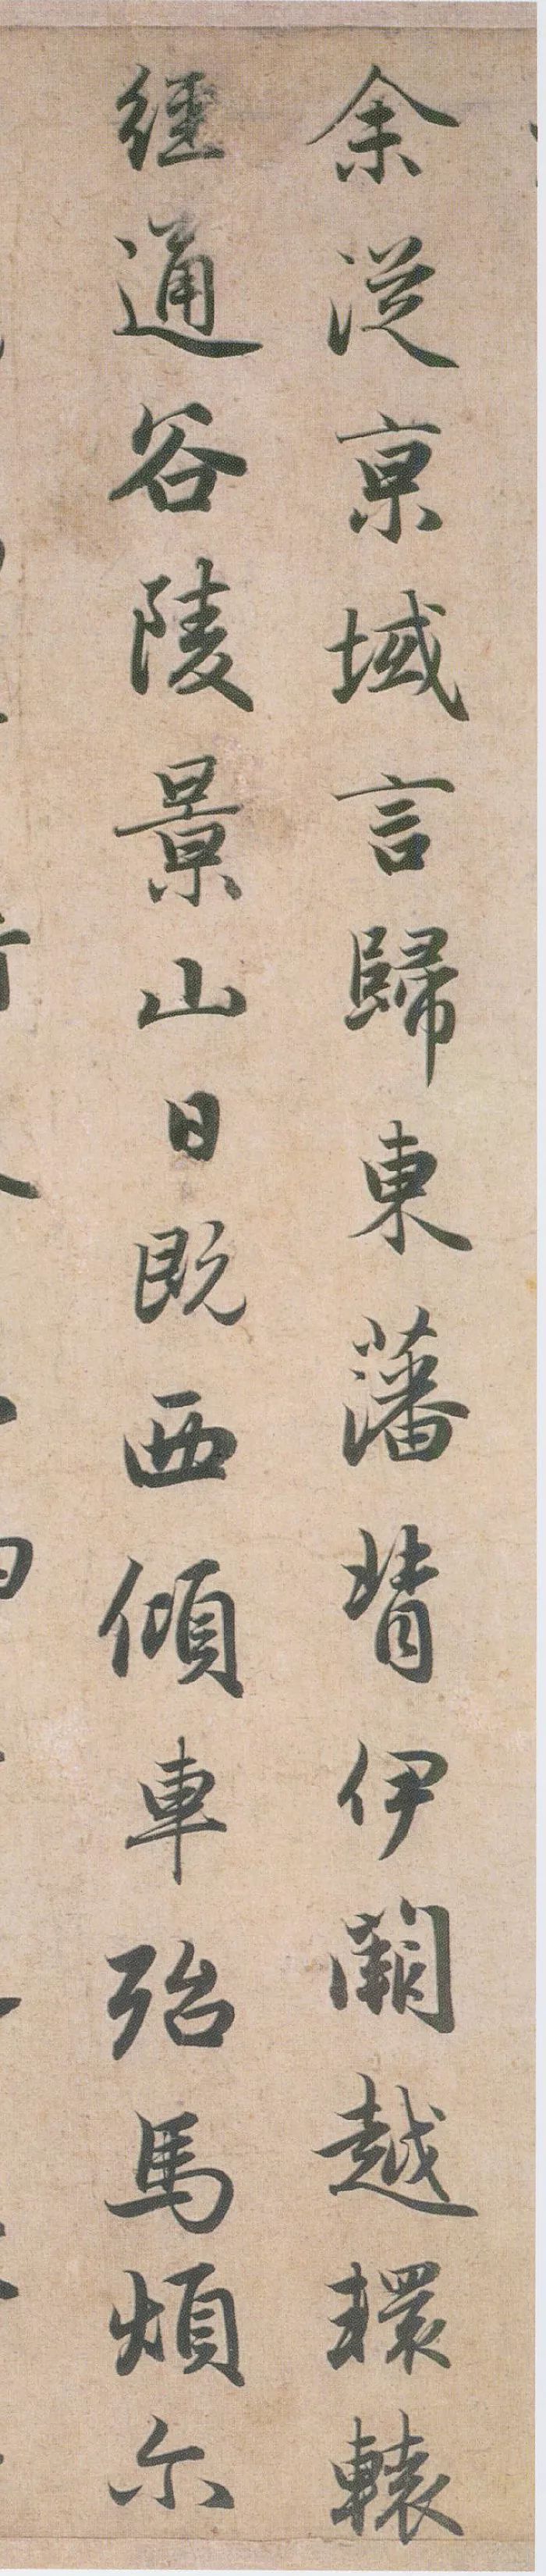 余從京域言歸東藩背伊闕越轘轅
經通谷陵景山日既西傾車殆馬煩尓